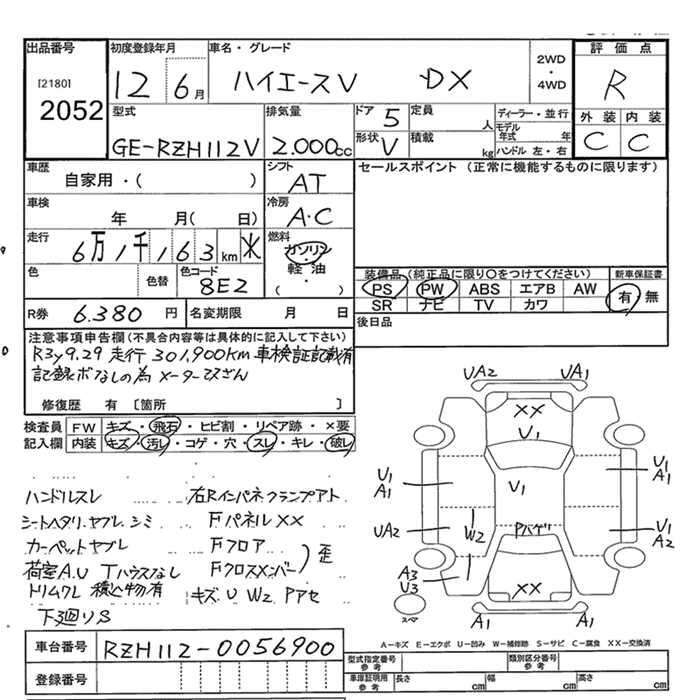 出品番号
[2180]
2052
初度登録年月
12 6月
車名・グレード
ハイエースV DX
2WD
・
4WD
評価点
R
型式
GE-RZH112V
排気量
2.000cc
ドア 5
形状 V
定員 人
積載 kg
ディーラー・並行
モデル年式 年
ハンドル 左・右
外装 内装
C C
車歴
自家用・( )
シフト
AT
セールスポイント (正常に機能するものに限ります)
車検
年 月( 日)
冷房
A.C
走行
6万1千163km
燃料
ガソリン
軽油
( )
色
色替
色コード
8E2
装備品 (純正品に限り○をつけてください)
新車保証書
PS PW ABS エアB AW
SR ナビ TV カワ
有・無
R券 6.380円
名変期限 月 日
後日品
注意事項申告欄(不具合内容等は具体的に記入して下さい)
R3y9.29 走行 301,900km 車検証記載有
記録ボなしの為 メーター改ざん
修復歴 有 [箇所 ]
検査員記入欄
FW キズ・飛石・ヒビ割・リペア跡・×要
内装 キズ・汚レ・コゲ・穴・スレ・キレ・破レ
ハンドルスレ 右Rインパネクランプアト
シートヘタリ、ヤブレ、シミ Fパネル XX
カーペットヤブレ Fフロア
荷室A.U Tハウスなし Fクロスメンバー 歪
トリムワレ 積込物有 キズ U W2 Pアセ
下廻りS
UA2 UA1
XX
U1
U1
A1
U1
A1
U1
UA2
W2
Pハゲ
U1
A2
A3
U3
XX
スペア
A1 A1
車台番号 RZH112-0056900
登録番号
A-キズ E-エクボ U-凹み W-補修跡 S-サビ C-腐食 XX-交換済
型式指定番号 参考
類別区分番号 参考
車庫証明用 参考
長さ cm
幅 cm
高さ cm